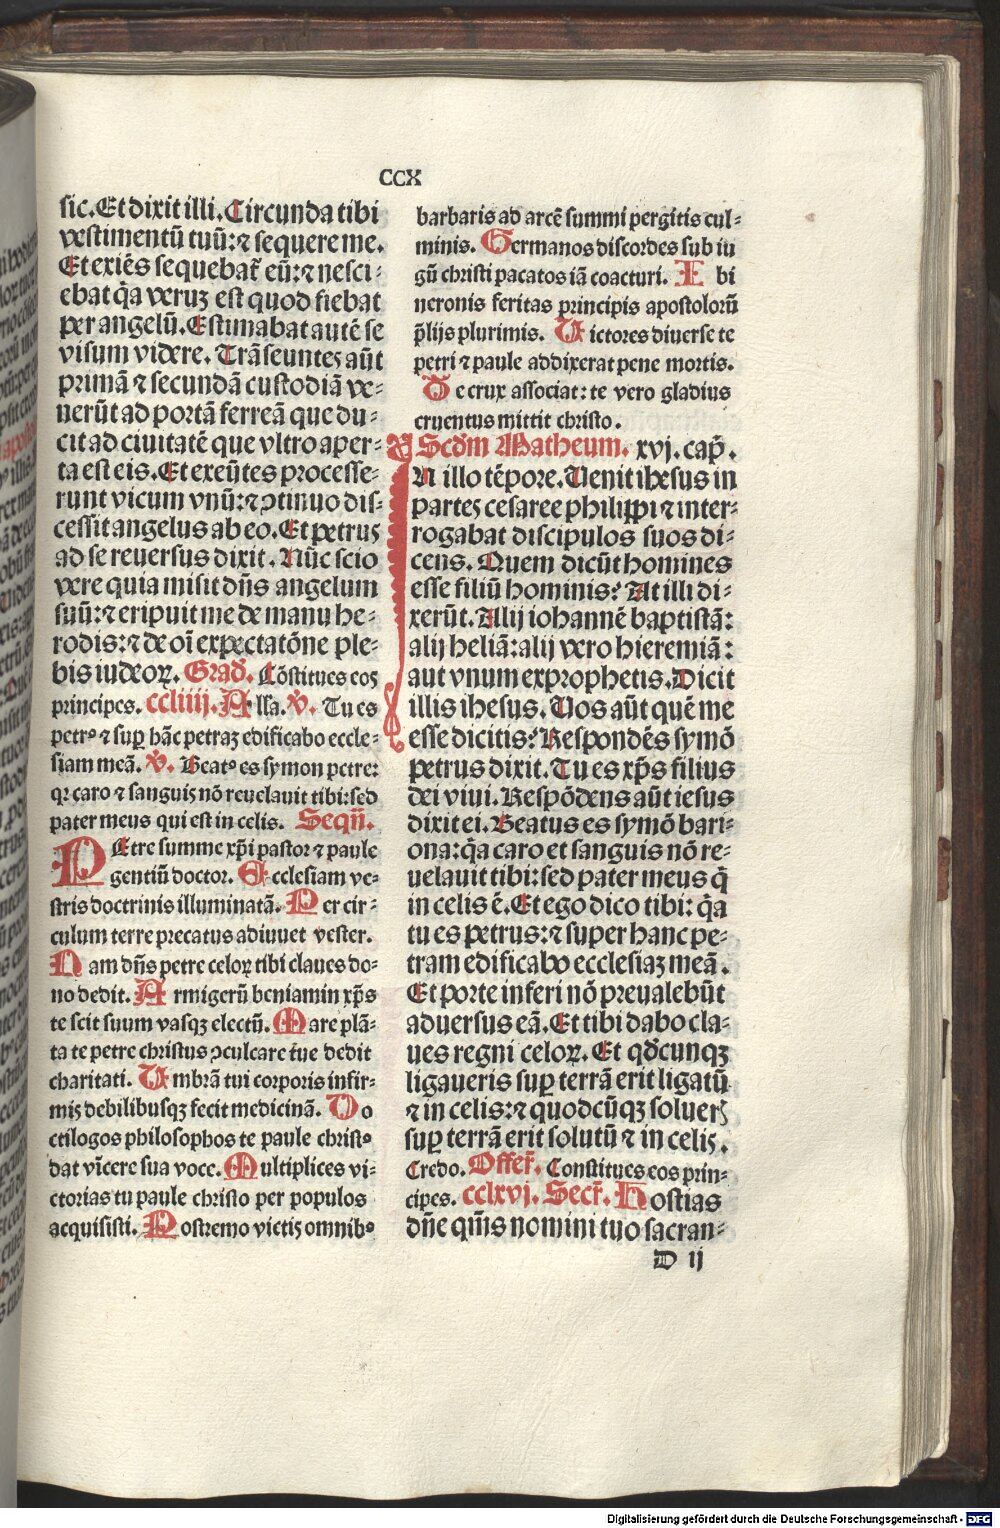 CCX
sic. Et dixit illi. Circunda tibi
vestimentū tuū: ⁊ sequere me.
Et exiēs sequebat᷑ eū: ⁊ nesci-
ebat q̄a veruꝫ est quod fiebat
per angelū. Estimabat autē se
visum videre. Trāseuntes aūt
primā ⁊ secundā custodiā ve-
nerūt ad portā ferreā que du-
cit ad ciuitatē que vltro aper-
ta est eis. Et exeūtes processe-
runt vicum vnū: ⁊ ꝯtinuo dis-
cessit angelus ab eo. Et petrus
ad se reuersus dixit. Nūc scio
vere quia misit dn̄s angelum
suū: ⁊ eripuit me de manu he-
rodis: ⁊ de oī expectatōne ple-
bis iudeoꝝ. Grad̄. Cōstitues eos
principes. ccliiij. All̄a. v̄. Tu es
petrꝰ ⁊ suꝑ hāc petraꝫ edificabo eccle-
siam meā. v̄. Beatꝰ es symon petre:
qꝛ caro ⁊ sanguis nō reuelauit tibi: sed
pater meus qui est in celis. Seqn̄.
PEtre summe xp̄i pastor ⁊ paule
gentiū doctor. Ecclesiam ve-
stris doctrinis illuminatā. Per cir-
culum terre precatus adiuuet vester.
Nam dn̄s petre celoꝝ tibi claues do-
no dedit. Armigerū beniamin xp̄s
te scit suum vasqꝫ electū. Mare plā-
ta te petre christus ꝯculcare tūe dedit
charitati. Umbrā tui corporis infir-
mis debilibusqꝫ fecit medicinā. Do
ctilogos philosophos te paule christꝰ
dat vīcere sua voce. Multiplices vi-
ctorias tu paule christo per populos
acquisisti. Postremo victis omnibꝰ
barbaris ad arcē summi pergitis cul-
minis. Germanos discordes sub iu
gū christi pacatos iā coacturi. Ibi
neronis feritas principis apostolorū
p̄lijs plurimis. Victores diuerse te
petri ⁊ paule addixerat pene mortis.
Te crux associat: te vero gladius
cruentus mittit christo.
Scdm Matheum. xvj. cap̄.
IN illo tēpore. Uenit ihesus in
partes cesaree philippi ⁊ inter-
rogabat discipulos suos di-
cens. Quem dicūt homines
esse filiū hominis? At illi di-
xerūt. Alij iohannē baptistā:
alij heliā: alij vero hieremiā:
aut vnum ex prophetis. Dicit
illis ihesus. Uos aūt quē me
esse dicitis? Respondēs symō
petrus dixit. Tu es xp̄s filius
dei viui. Respōdens aūt iesus
dixit ei. Beatus es symō bari-
ona: q̄a caro et sanguis nō re-
uelauit tibi: sed pater meus q̄
in celis ē. Et ego dico tibi: q̄a
tu es petrus: ⁊ super hanc pe-
tram edificabo ecclesiaꝫ meā.
Et porte inferi nō preualebūt
aduersus eā. Et tibi dabo cla-
ues regni celoꝝ. Et qd̄cunqꝫ
ligaueris suꝑ terrā erit ligatū
⁊ in celis: ⁊ quodcūqꝫ soluerꝭ
suꝑ terrā erit solutū ⁊ in celis.
Credo. Offer̄. Constitues eos prin-
cipes. cclxvj. Secr̄. Hostias
dn̄e qm̄s nomini tuo sacran-
D ij
Digitalisierung gefördert durch die Deutsche Forschungsgemeinschaft - DFG